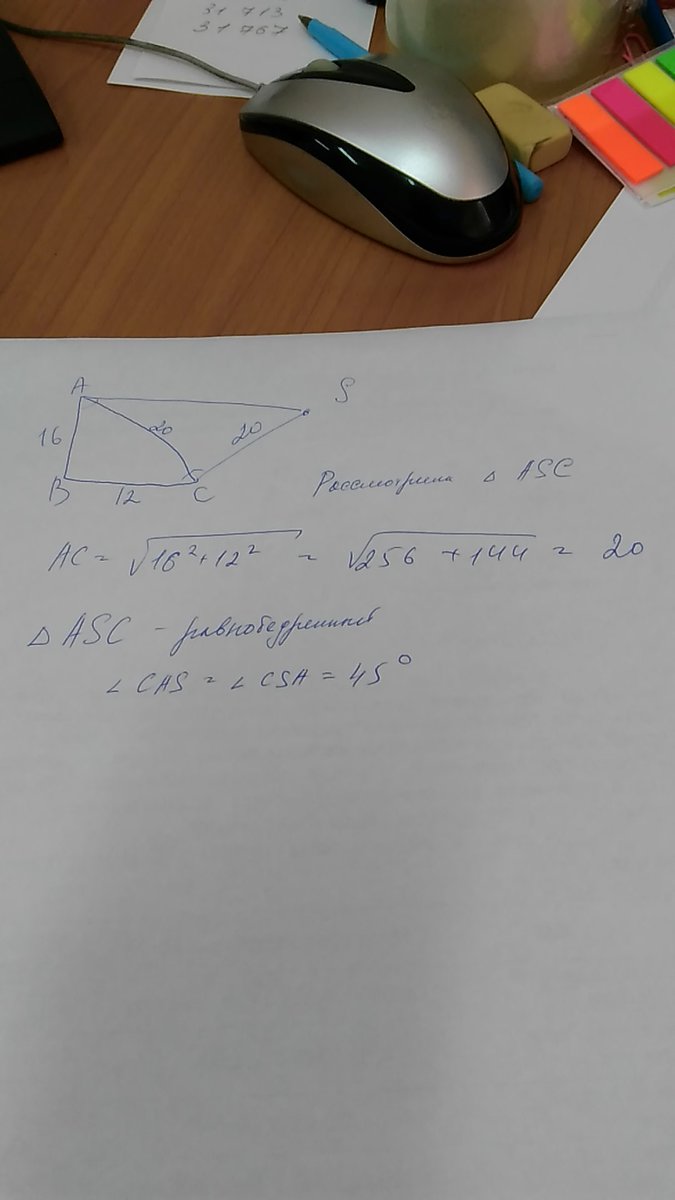 31 713
31 767
A
S
16
20
20
B
12
C
Рассмотрим △ ASC
AC = √16²+12² = √256 + 144 = 20
△ ASC - равнобедренный
∠ CAS = ∠ CSA = 45°